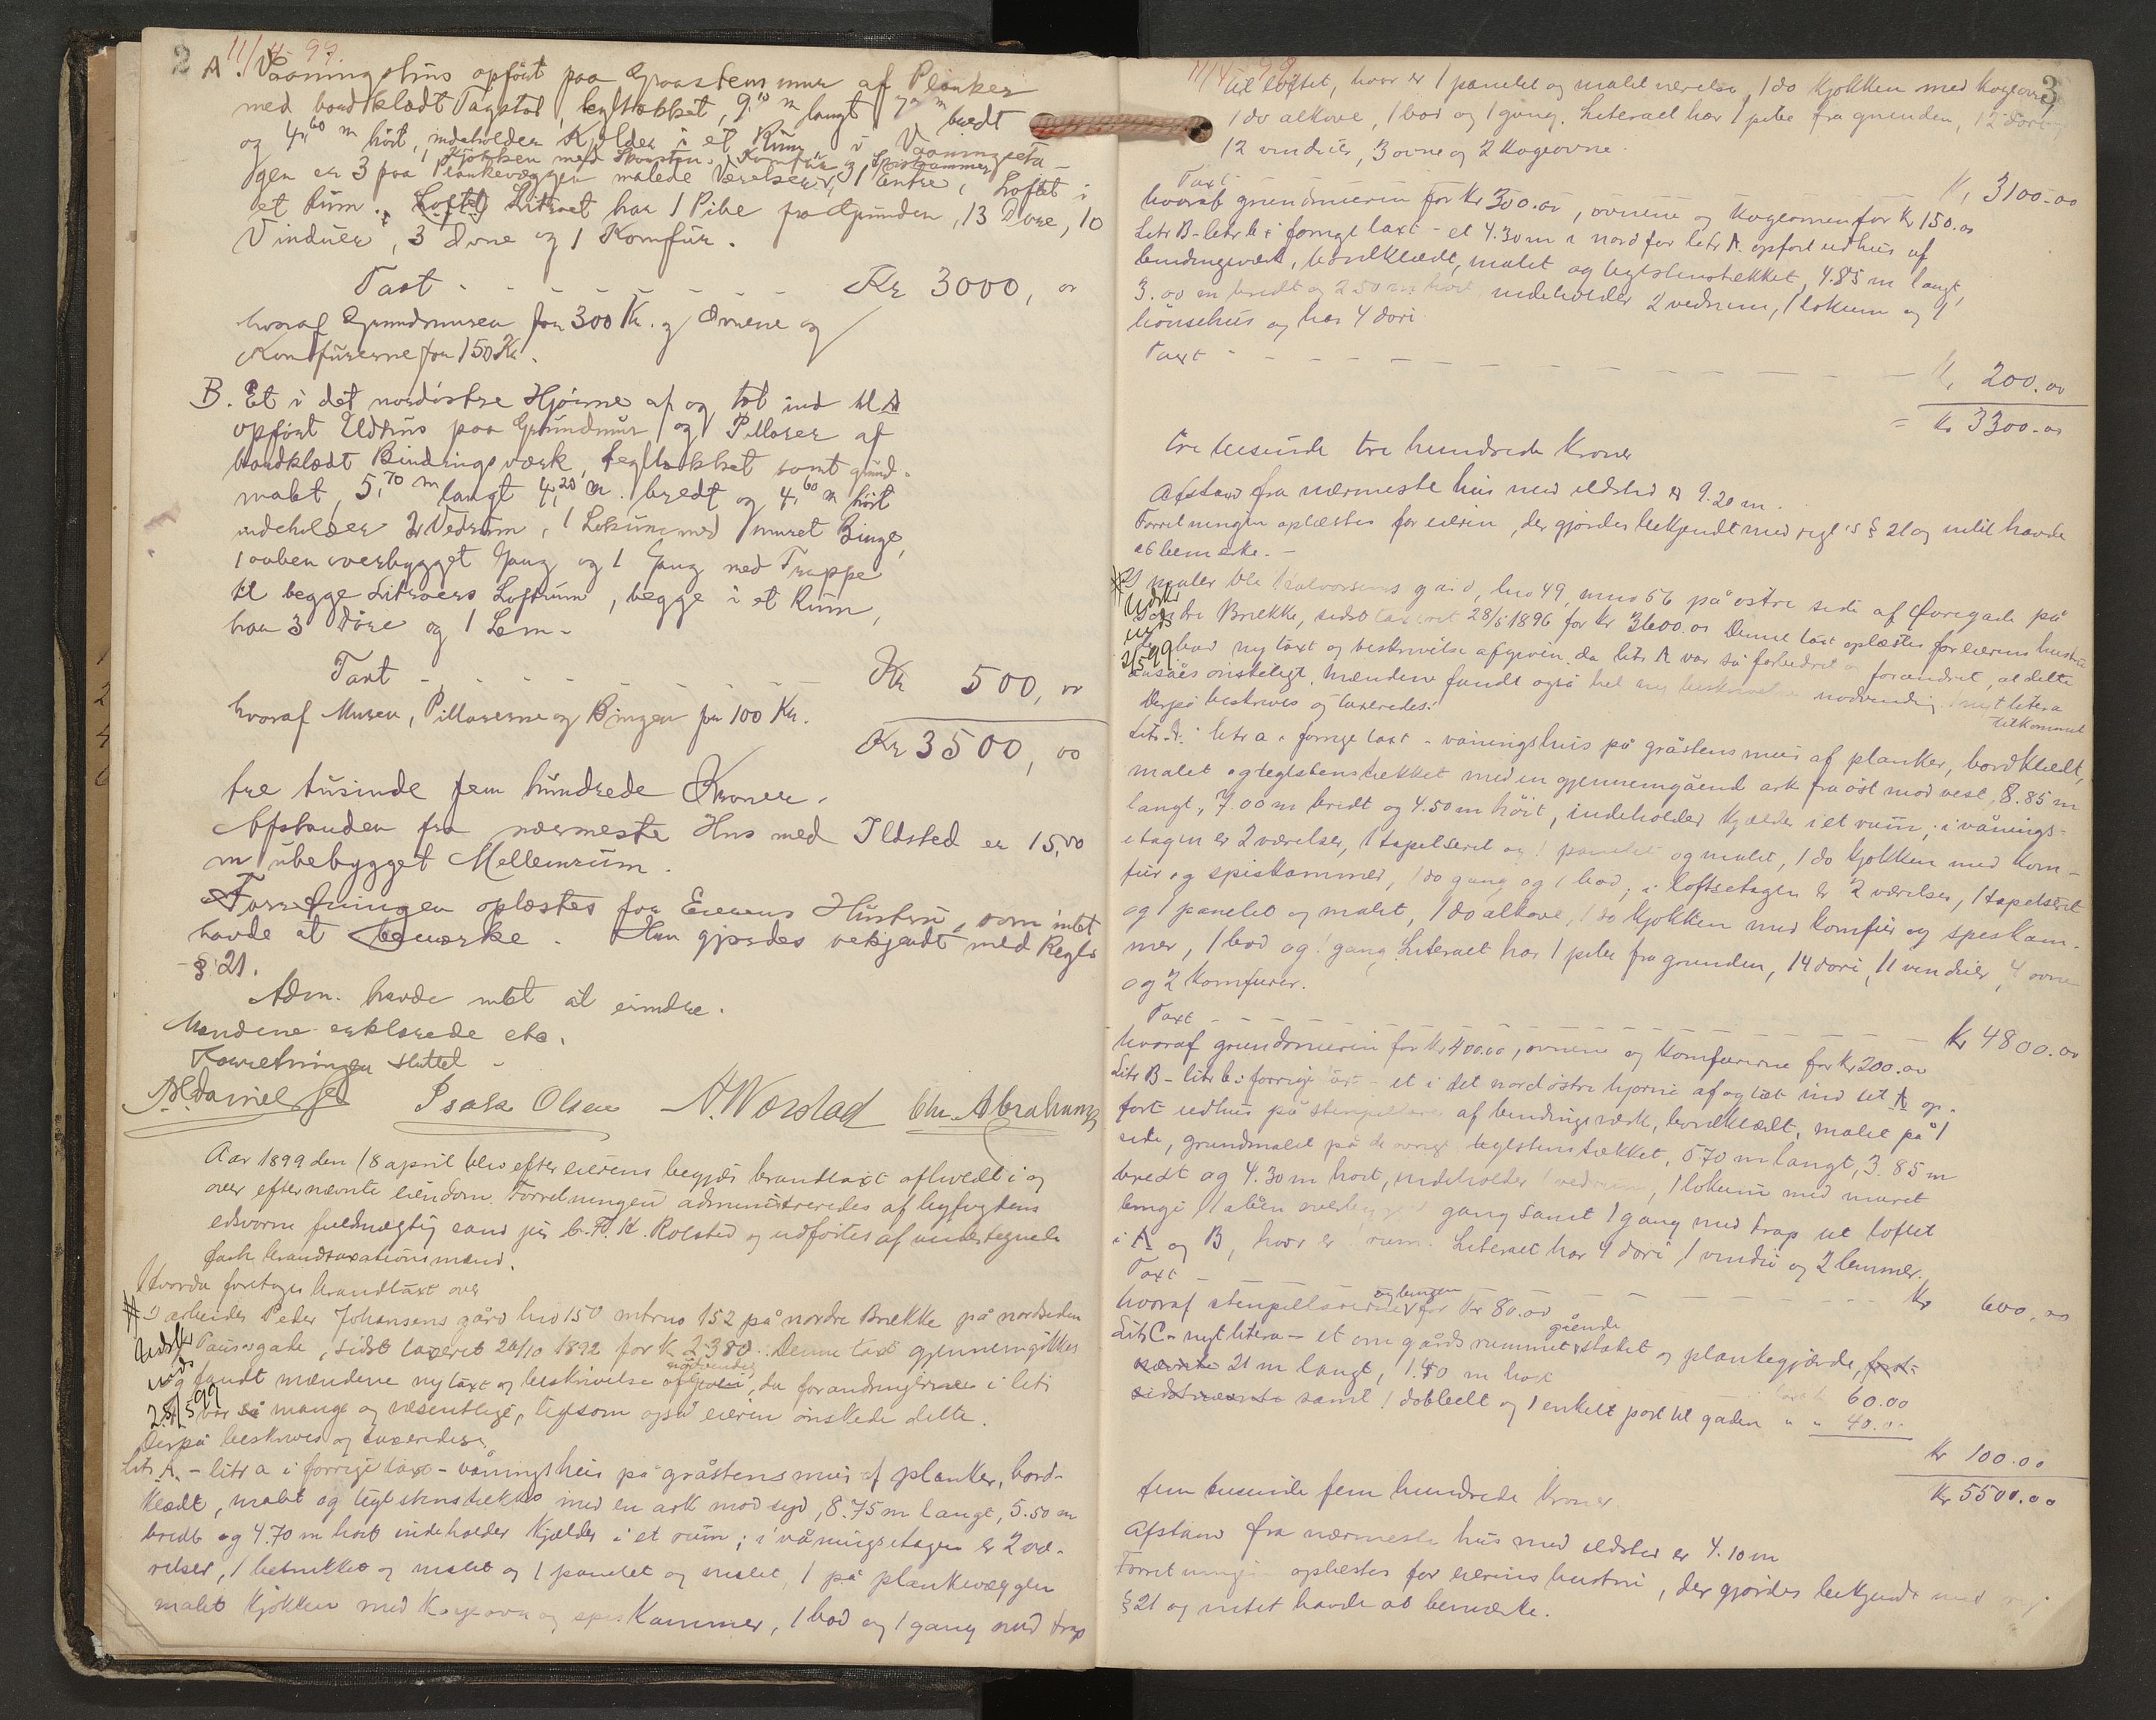 2 11/4 99.
A. Vaaningshus opført paa Graastensmur af Planker
med bordklædt Tagstol, tegltækket, 9,10 m langt 7,00 m bredt
og 4,60 m høit, indeholder Kjelder i et Rum i Vaaningseta-
gen er 3 paa Plankevæggen malede Værelser, 1 Kjøkken med Skorsten, Komfur og Spiskammer, 1 Entre, Loftet i
et Rum. Litraet har 1 Pibe fra Grunden, 13 Døre, 10
Vinduer, 3 Ovne og 1 Komfur.
Taxt - - - - - - - Kr 3000, 00
hvoraf Grundmuren for 300 Kr. og Ovnene og
Komfurerne for 150 Kr.
B. Et i det nordøstre Hjørne af og tæt ind til A
opført Udhus paa Grundmur og Pillarer af
bordklædt Bindingsværk, tegltækket samt grund-
malt, 5,70 m langt 4,20 m. bredt og 4,60 m høit
indeholder 2 Vedrum, 1 Lokum med muret Binge,
1 aaben overbygget Gang og 1 Gang med Trappe
til begge Litraers Loftrum, begge i et Rum,
har 3 Døre og 1 Lem.
Taxt - - - - - - - Kr 500, 00
hvoraf Muren, Pillarerne og Bingen for 100 Kr.
Kr 3500, 00
tre tusinde fem hundrede Kroner.
Afstanden fra nærmeste Hus med Ildsted er 15,00
m ubebygget Mellemrum.
Forretningen oplæstes for Eierens Hustru, som intet
havde at bemærke. Hun gjordes bekjendt med Regls
§ 21.
Adm. havde intet at erindre.
Mændene erklærede etc.
Forretningen sluttet -
Isak Olsen N. Worslad Chr. Abrahams
Aar 1899 den 18 april blev efter eierens begjær brandtaxt afholdt i og
over efternævnte eiendom. Forretningen administreredes af byfogdens
edsvorne fuldmægtig cand jur C. F. K. Rolsted og udførtes af undertegnede
faste brandtaxationsmænd.
Hvorda foretoges brandtaxt over
1) arbeider Peder Johansens gård hno 150 mtrno 152 på nordre Brække på nordsiden
Udskr Pausgade, sidst taxeret 26/10 1892 for Kr 2380. Denne taxt gjennemgikkes
og fandt mændene ny taxt og beskrivelse nødvendig, da forandringerne i litr
25/5 99 var så mange og væsentlige, ligesom også eieren ønskede dette.
Derpå beskreves og taxeredes:
Litr A. - litr a i forrige taxt - våningshus på gråstensmur af planker, bord-
klædt, malet og teglstenstækket med en ark mod syd, 8.75 m langt, 5.50 m
bredt og 4.70 m høit indeholder kjælder i et rum; i våningsetagen er 2 væ-
relser, 1 betrukket og malet og 1 panelet og malet, 1 på plankevæggen
malet kjøkken med kogeovn og spiskammer, 1 bod og 1 gang med trap
11/4 99 3
til loftet, hvor er 1 panelet og malet værelse, 1 do kjøkken med kogeovn,
1 do alkove, 1 bod og 1 gang. Literaet har 1 pibe fra grunden, 12 døre
12 vinduer, 3 ovne og 2 kogeovne.
Taxt - Kr 3100.00
hvoraf grundmuren for Kr 300.00, ovnene og kogeovnen for Kr 150.00
Litr B - litr b i forrige taxt - et 4.30 m i nord for litr A. opført udhus af
bindingsværk, bordklædt, malet og teglstenstækket, 4.85 m langt,
3.00 m bredt og 2.50 m høit indeholder 2 vedrum, 1 lokum og 1
hønsehus og har 4 døre
Taxt - - - - - - - Kr 200.00
= Kr 3300.00
tre tusinde tre hundrede kroner
Afstand fra nærmeste hus med ildsted er 9.20 m.
Forretningen oplæstes for eieren, der gjordes bekjendt med regl's § 21 og intet havde
at bemærke. -
2) maler Ole Halvorsens gård, hno 49, mno 56 på østre side af Øvregade på
Udskr søndre Brække, sidst taxeret 28/5 1896 for Kr 3600.00 Denne taxt oplæstes for eierens hustru
der bad ny taxt og beskrivelse afgiven, da litr A var så forbedret og forandret, at dette
2/5 99 ansåes ønskeligt. Mændene fandt også hel ny beskrivelse nødvendig, nyt litera
tilkommet
Derpå beskreves og taxeredes:
Litr A: litr a i forrige taxt - våningshus på gråstensmur af planker, bordklædt,
malet og teglstenstækket med en gjennemgående ark fra øst mod vest, 8.85 m
langt, 7.00 m bredt og 4.50 m høit, indeholder kjælder i et rum; i vånings-
etagen er 2 værelser, 1 tapetseret og 1 panelet og malet, 1 do kjøkken med kom-
fur og spiskammer, 1 do gang og 1 bod; i loftsetagen er 2 værelser, 1 tapetseret
og 1 panelet og malet, 1 do alkove, 1 do kjøkken med komfur og spiskam-
mer, 1 bod og 1 gang Literaet har 1 pibe fra grunden, 14 døre, 11 vinduer, 4 ovne
og 2 komfurer.
Taxt - - - - - - - Kr 4800.00
hvoraf grundmuren for Kr 400.00, ovnene og komfurerne for Kr 200.00
Litr B - litr b i forrige taxt - et i det nordøstre hjørne af og tæt ind til A op-
ført udhus på stenpillarer af bindingsværk, bordklædt, malet på 1
side, grundmalet på de øvrige, teglstenstækket, 5.70 m langt, 3.85 m
bredt og 4.30 m høit, indeholder 1 vedrum, 1 lokum med muret
binge 1 åben overbygget gang samt 1 gang med trap til loftet
i A og B, hvor er 1 rum. Literaet har 4 døre 1 vindu og 2 lemmer.
Taxt - - - - - - - Kr 600.00
hvoraf stenpillarerne og bingen for Kr 80.00
Litr C - nyt litera - et om gårdsrummet gående stakit og plankegjærde,
21 m langt, 1.50 m høit 60.00
samt 1 dobbelt og 1 enkelt port til gaden " " 40.00
Kr 100.00
Kr 5500.00
fem tusinde fem hundrede kroner.
Afstand fra nærmeste hus med ildsted er 4.10 m
Forretningen oplæstes for eierens hustru, der gjordes bekjendt med regl
§ 21 og intet havde at bemærke.